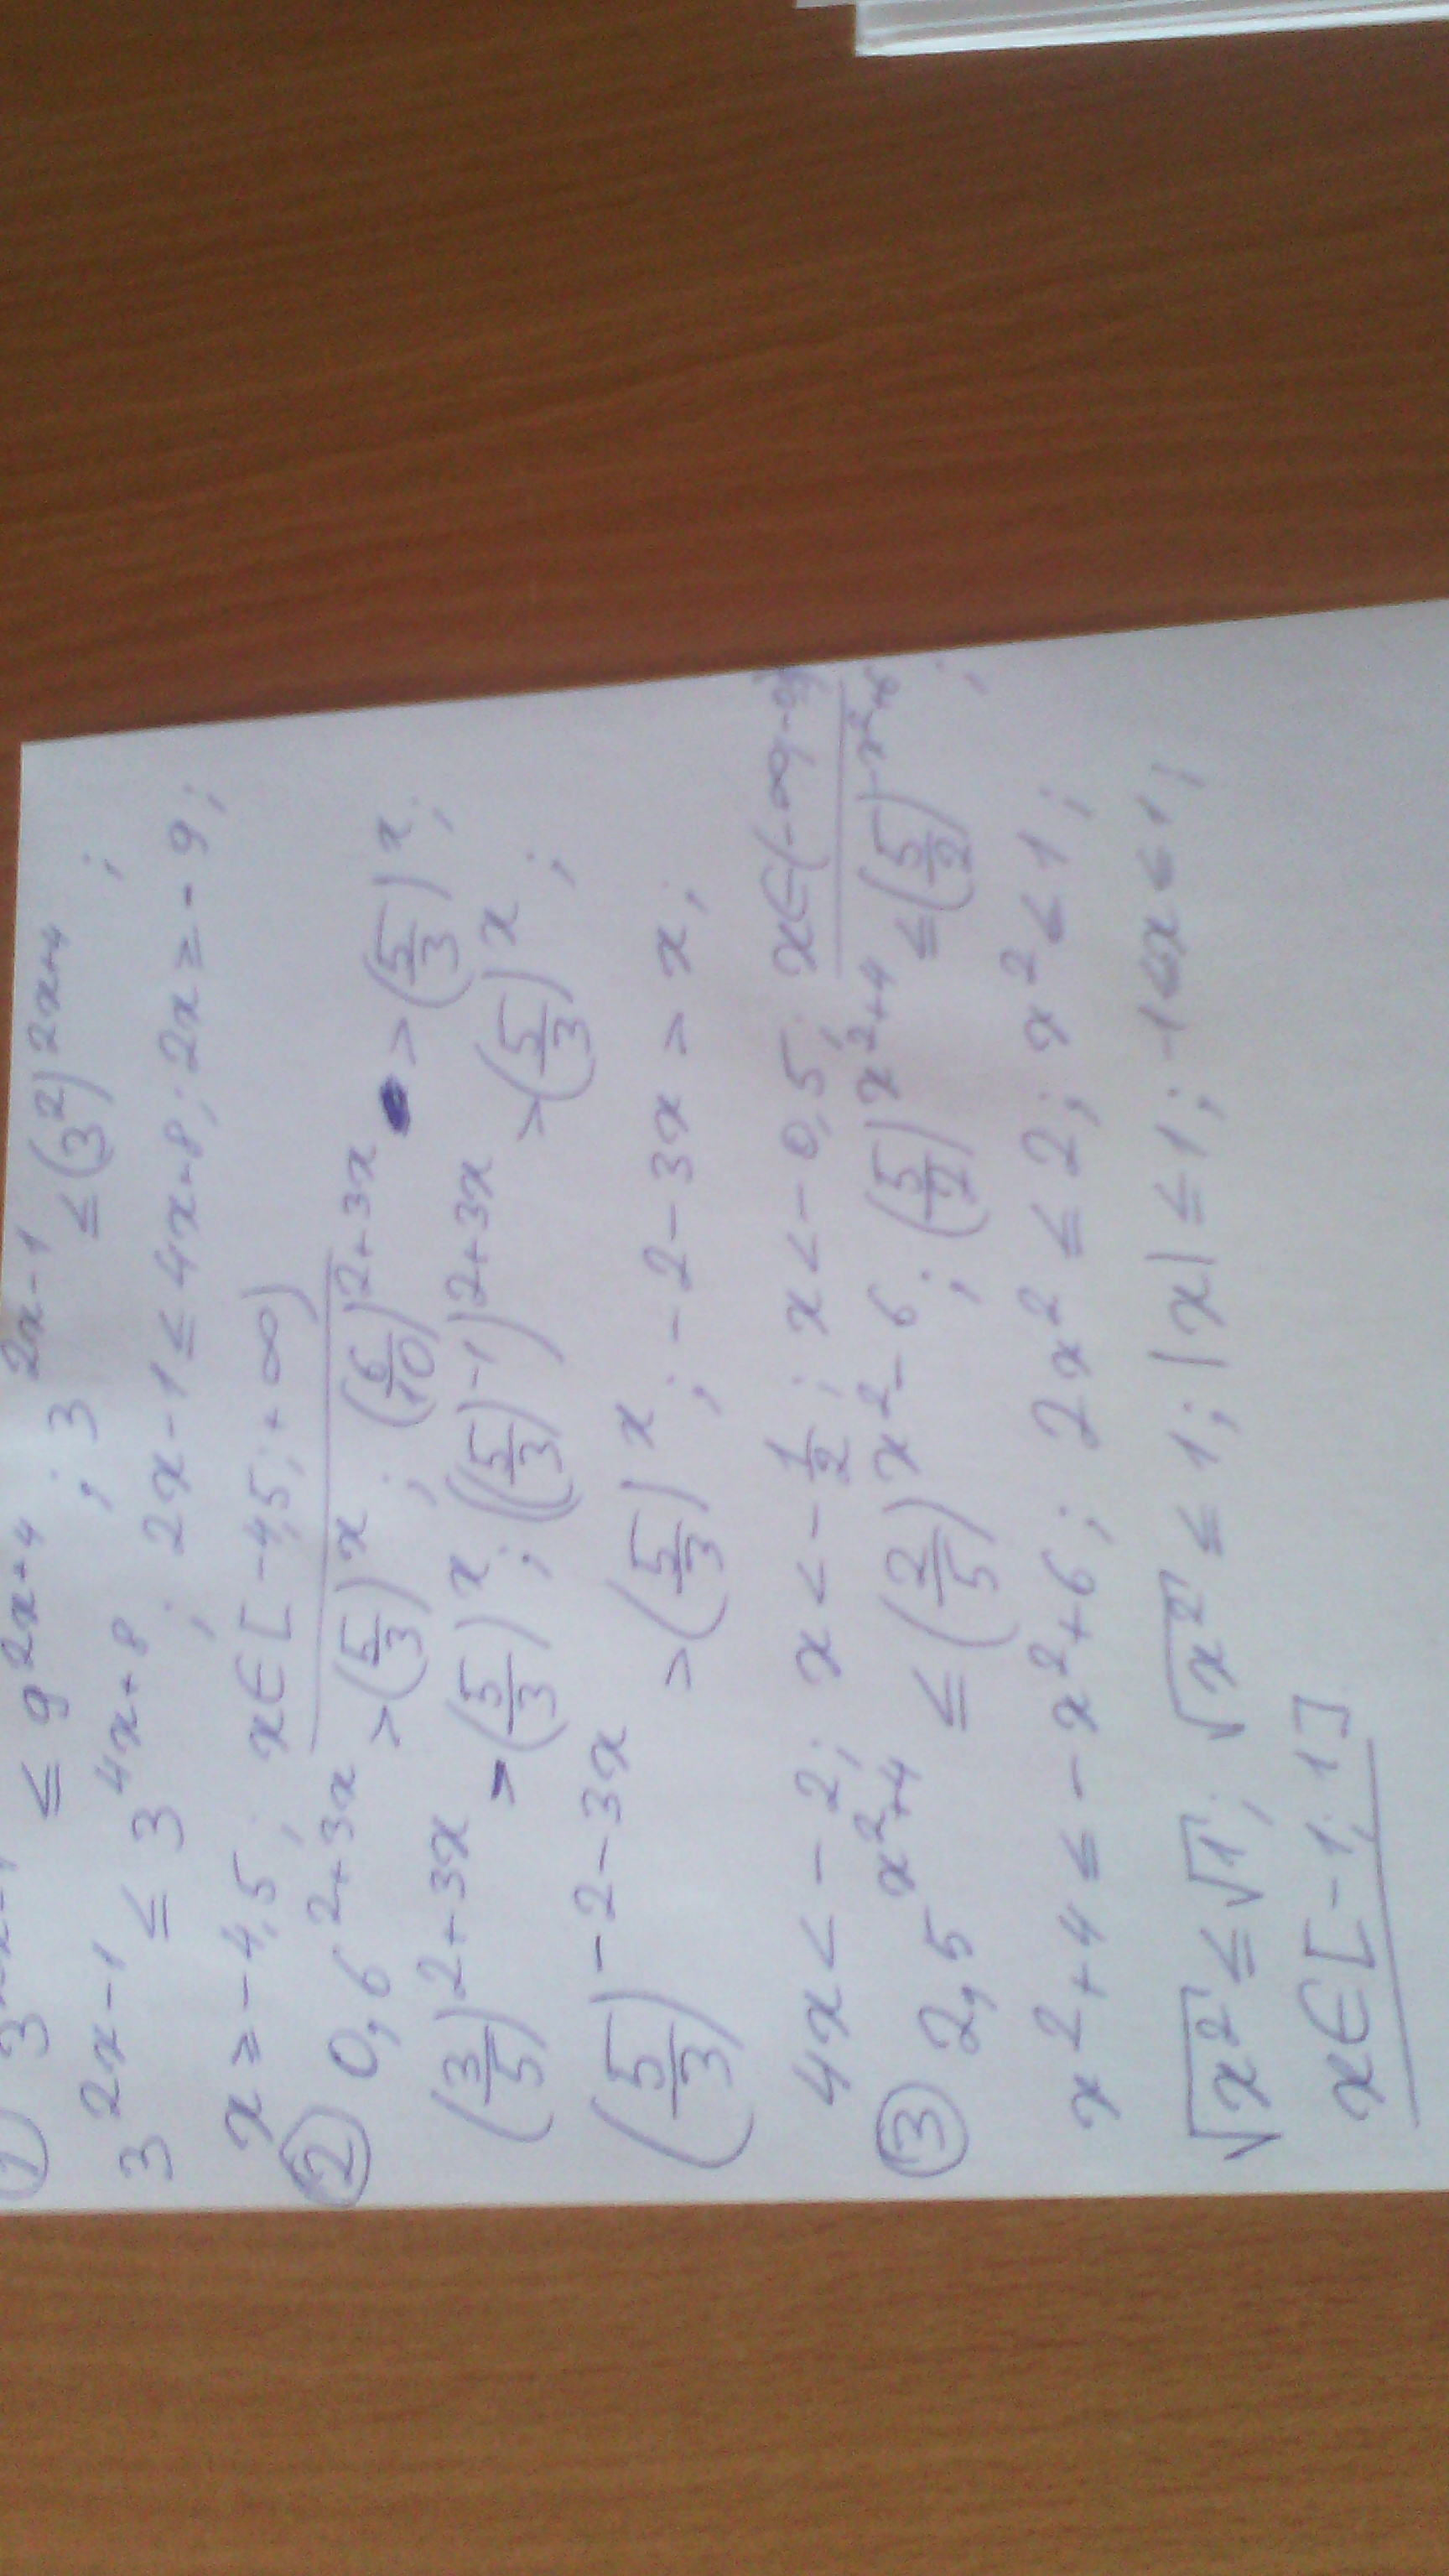 ① 3^{2x-1} ≤ 9^{2x+4} ; 3^{2x-1} ≤ (3^2)^{2x+4} ;
3^{2x-1} ≤ 3^{4x+8} ; 2x-1 ≤ 4x+8; 2x ≥ -9;
x ≥ -4,5 ; x∈[-4,5; +∞)
② 0,6^{2+3x} > (5/3)^x ; (6/10)^{2+3x} > (5/3)^x ;
(3/5)^{2+3x} > (5/3)^x ; ((5/3)^{-1})^{2+3x} > (5/3)^x ;
(5/3)^{-2-3x} > (5/3)^x ; -2-3x > x ;
4x < -2; x < -1/2 ; x < -0,5; x∈(-∞;
③ 2,5^{x^2+4} ≤ (2/5)^{x^2-6} ; (5/2)^{x^2+4} ≤ (5/2)^{-x^2+6} ;
x^2+4 ≤ -x^2+6; 2x^2 ≤ 2; x^2 ≤ 1;
√x^2 ≤ √1; √x^2 ≤ 1; |x| ≤ 1; -1≤x≤1;
x∈[-1; 1]